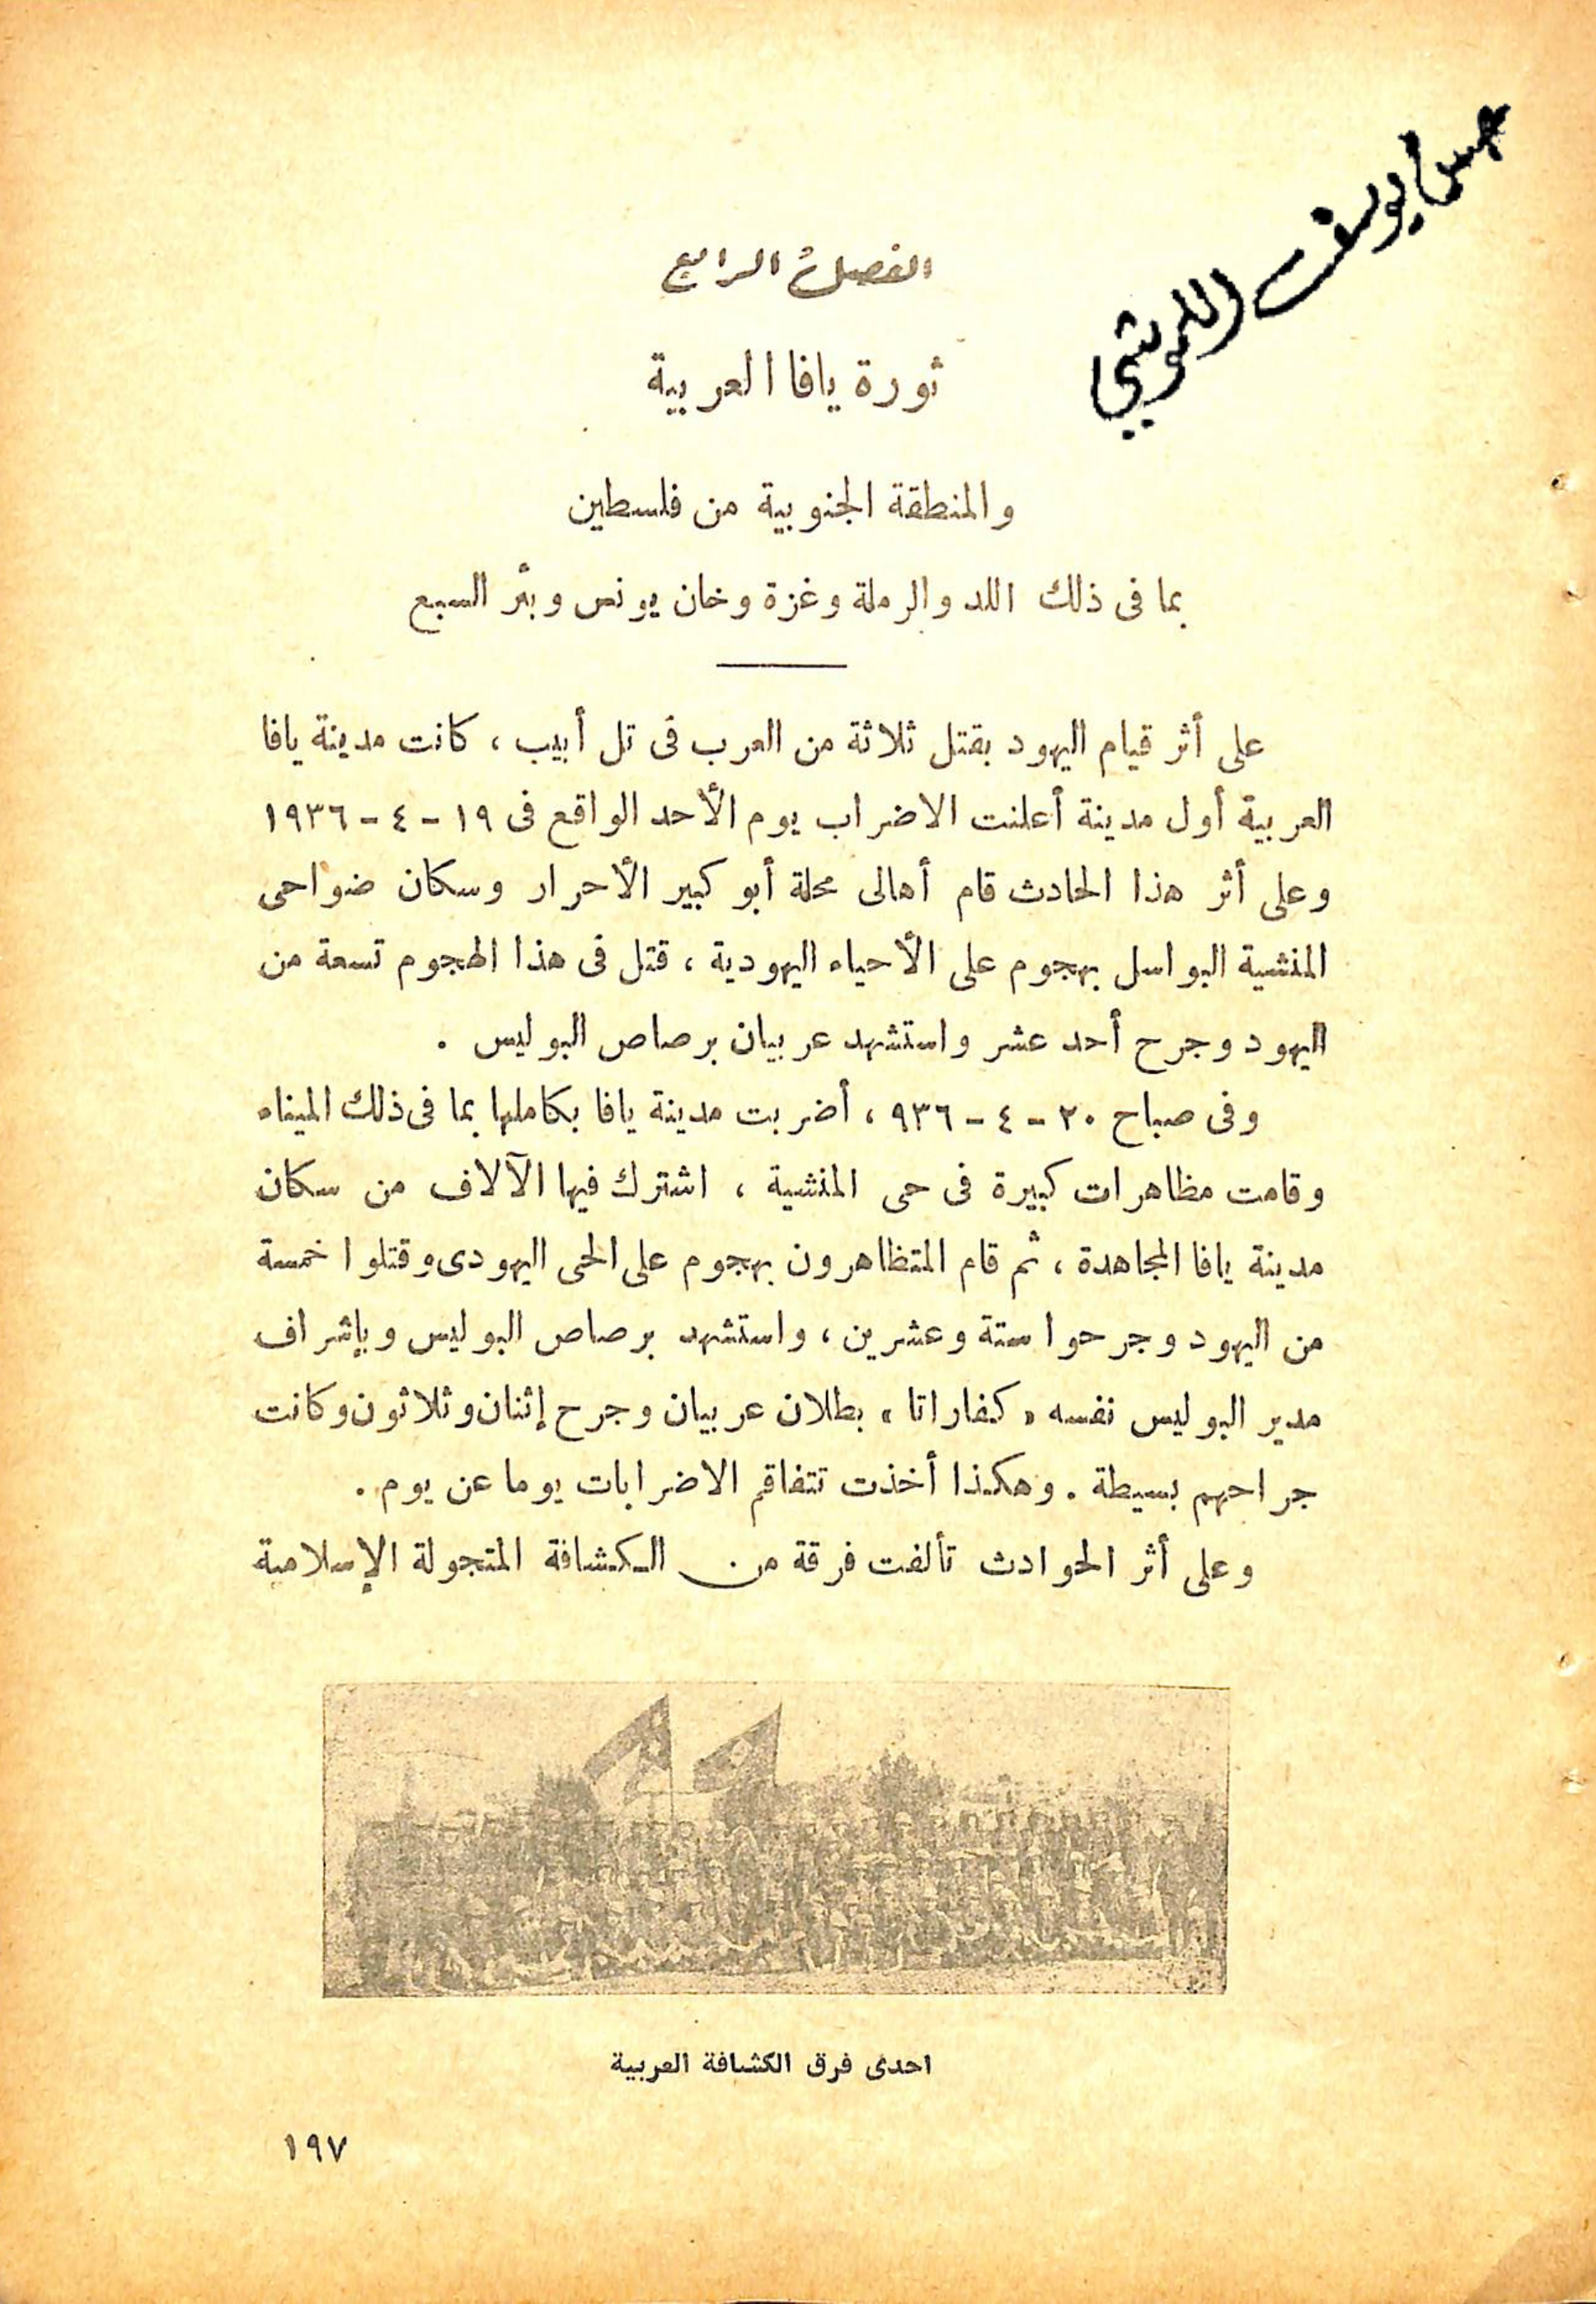 حسن يوسف اللموشي
الفصل الرابع
ثورة يافا العربية
والمنطقة الجنوبية من فلسطين
بما فى ذلك اللد والرملة وغزة وخان يونس وبئر السبع
على أثر قيام اليهود بقتل ثلاثة من العرب فى تل أبيب ، كانت مدينة يافا
العربية أول مدينة أعلنت الاضراب يوم الأحد الواقع فى ١٩ - ٤ - ١٩٣٦
وعلى أثر هذا الحادث قام أهالى محلة أبو كبير الأحرار وسكان ضواحى
المنشية البواسل بهجوم على الأحياء اليهودية ، قتل فى هذا الهجوم تسعة من
اليهود وجرح أحد عشر واستشهد عربيان برصاص البوليس .
وفى صباح ٢٠ - ٤ - ٩٣٦ ، أضربت مدينة يافا بكاملها بما فى ذلك الميناء
وقامت مظاهرات كبيرة فى حى المنشية ، اشترك فيها الآلاف من سكان
مدينة يافا المجاهدة ، ثم قام المتظاهرون بهجوم على الحى اليهودى وقتلوا خمسة
من اليهود وجرحوا ستة وعشرين ، واستشهد برصاص البوليس وبإشراف
مدير البوليس نفسه « كفاراتا » بطلان عربيان وجرح إثنان وثلاثون وكانت
جراحهم بسيطة . وهكذا أخذت تتفاقم الاضرابات يوما عن يوم .
وعلى أثر الحوادث تألفت فرقة من الكشافة المتجولة الإسلامية
احدى فرق الكشافة العربية
١٩٧